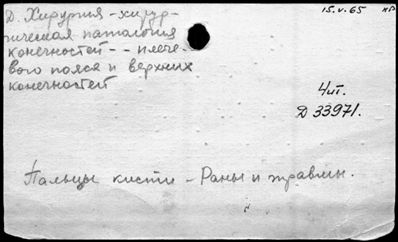 Д. Хирургия - хирур-
гическая патология
конечностей - - плече-
вого пояса и верхних
конечностей
15.V.65
Чит.
Д 33971.
Пальцы кисти - Раны и травмы.